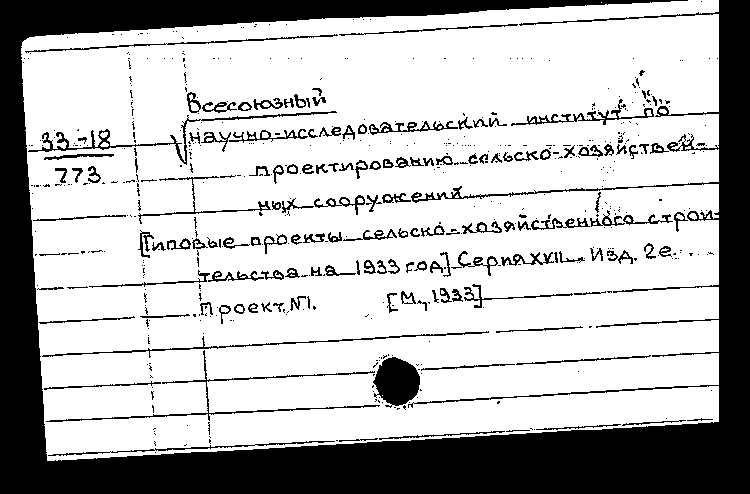 Всесоюзный
33-18
773
научно-исследовательский институт по
проектированию сельско-хозяйствен-
ных сооружений
[Типовые проекты сельско-хозяйственного строи-
тельства на 1933 год] Серия XVII. Изд. 2е.
Проект №1. [М., 1933]